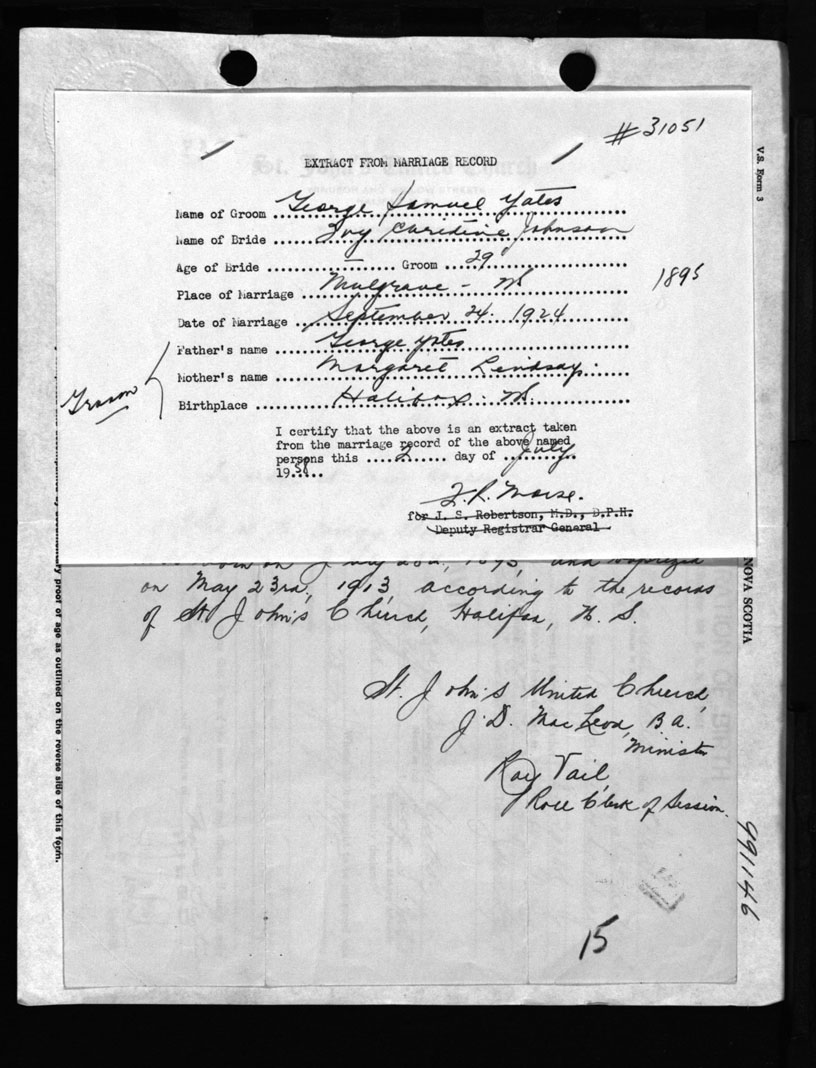 #31051
EXTRACT FROM MARRIAGE RECORD
Name of Groom George Samuel Yates
Name of Bride Ivy Johnson
Age of Bride — Groom 29
1895
Place of Marriage Mulgrave - NS
Date of Marriage September 24. 1924
Father's name George Yates
Mother's name Margaret Lindsay.
Groom
Birthplace Halifax. NS.
I certify that the above is an extract taken
from the marriage record of the above named
persons this 2 day of July
1958
Morse.
for J. S. Robertson, M.D., D.P.H.
Deputy Registrar General
1895, and baptized
on May 23rd, 1913, according to the records
of St John's Church, Halifax, N. S.
St. John's United Church
J. D. MacLeod, B A.
Minister
Ray Vail
Roll Clerk of Session.
15
V.S. Form 3
NOVA SCOTIA
991146
proof of age as outlined on the reverse side of this form.
St. John's United Church